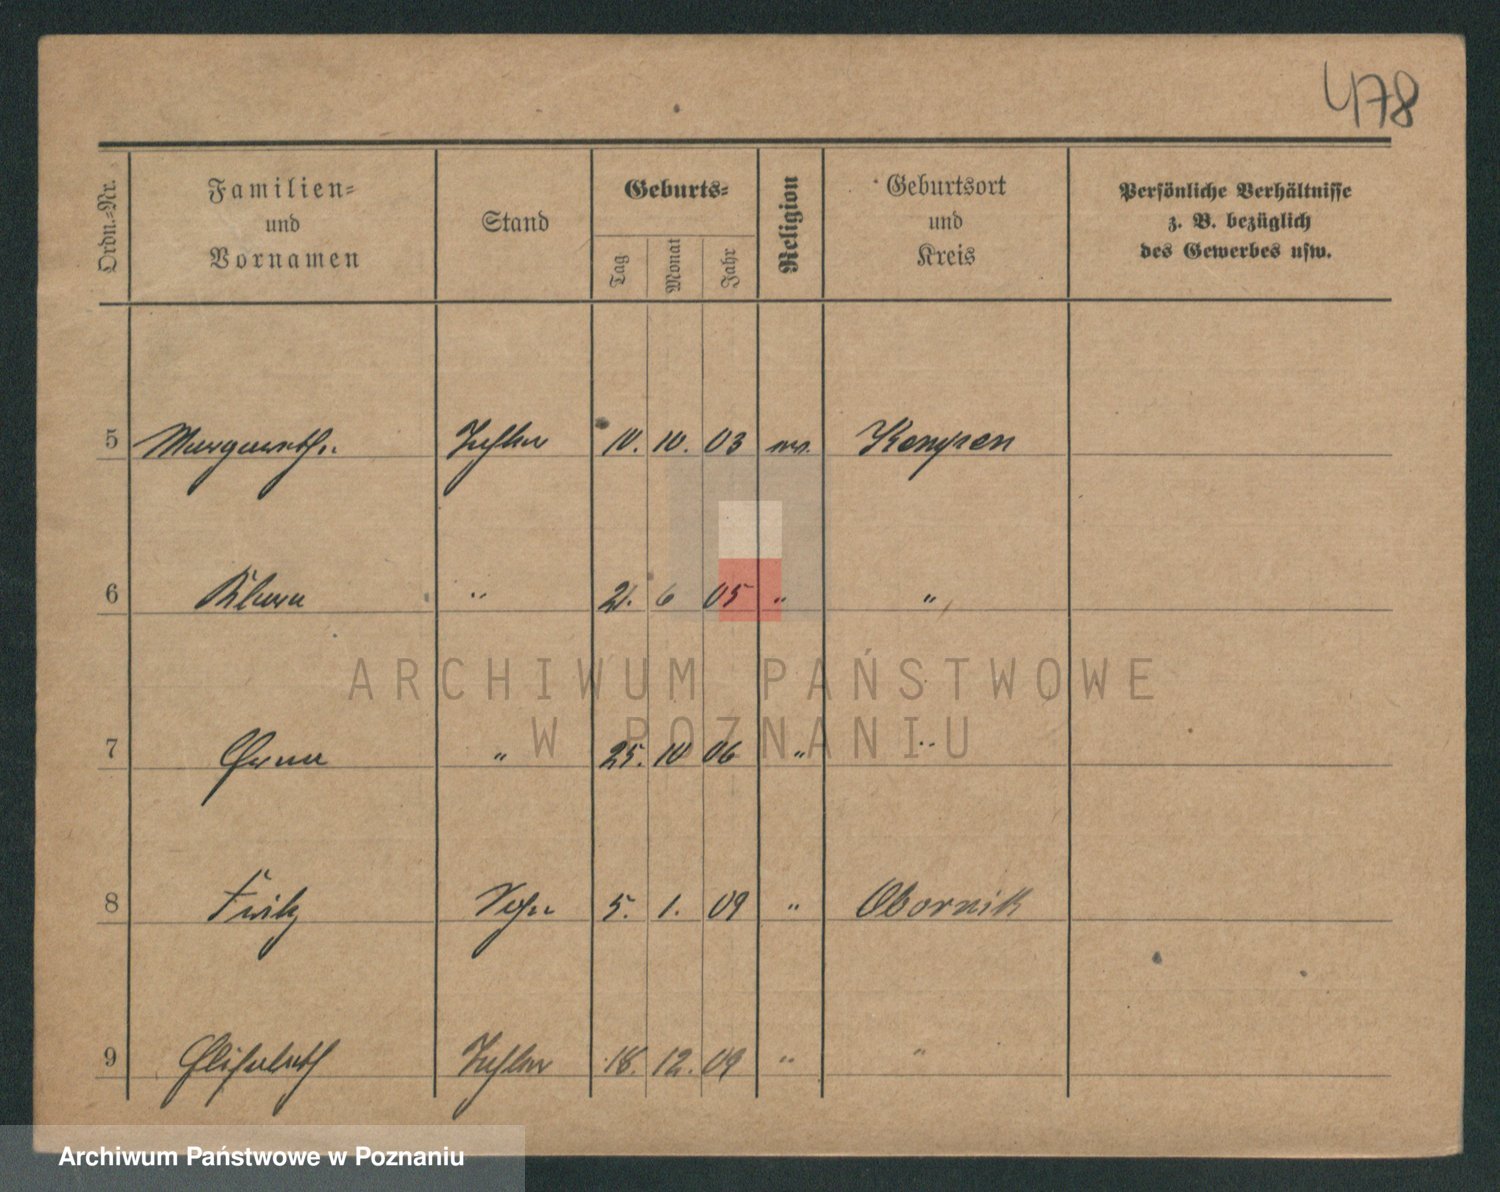 478
Ordn.=Nr.
Familien=
und
Vornamen
Stand
Geburts=
Tag
Monat
Jahr
Religion
Geburtsort
und
Kreis
Persönliche Verhältnisse
z. B. bezüglich
des Gewerbes usw.
5 Margareth. Tochter 10. 10. 03 Kempen
6 Klara " 21. 6 05 " "
7 Erna " 25. 10 06 " "
8 Fritz Sohn 5. 1. 09 " Obornik
9 Elisabeth Tochter 18. 12. 09 " "
ARCHIWUM PAŃSTWOWE
W POZNANIU
Archiwum Państwowe w Poznaniu